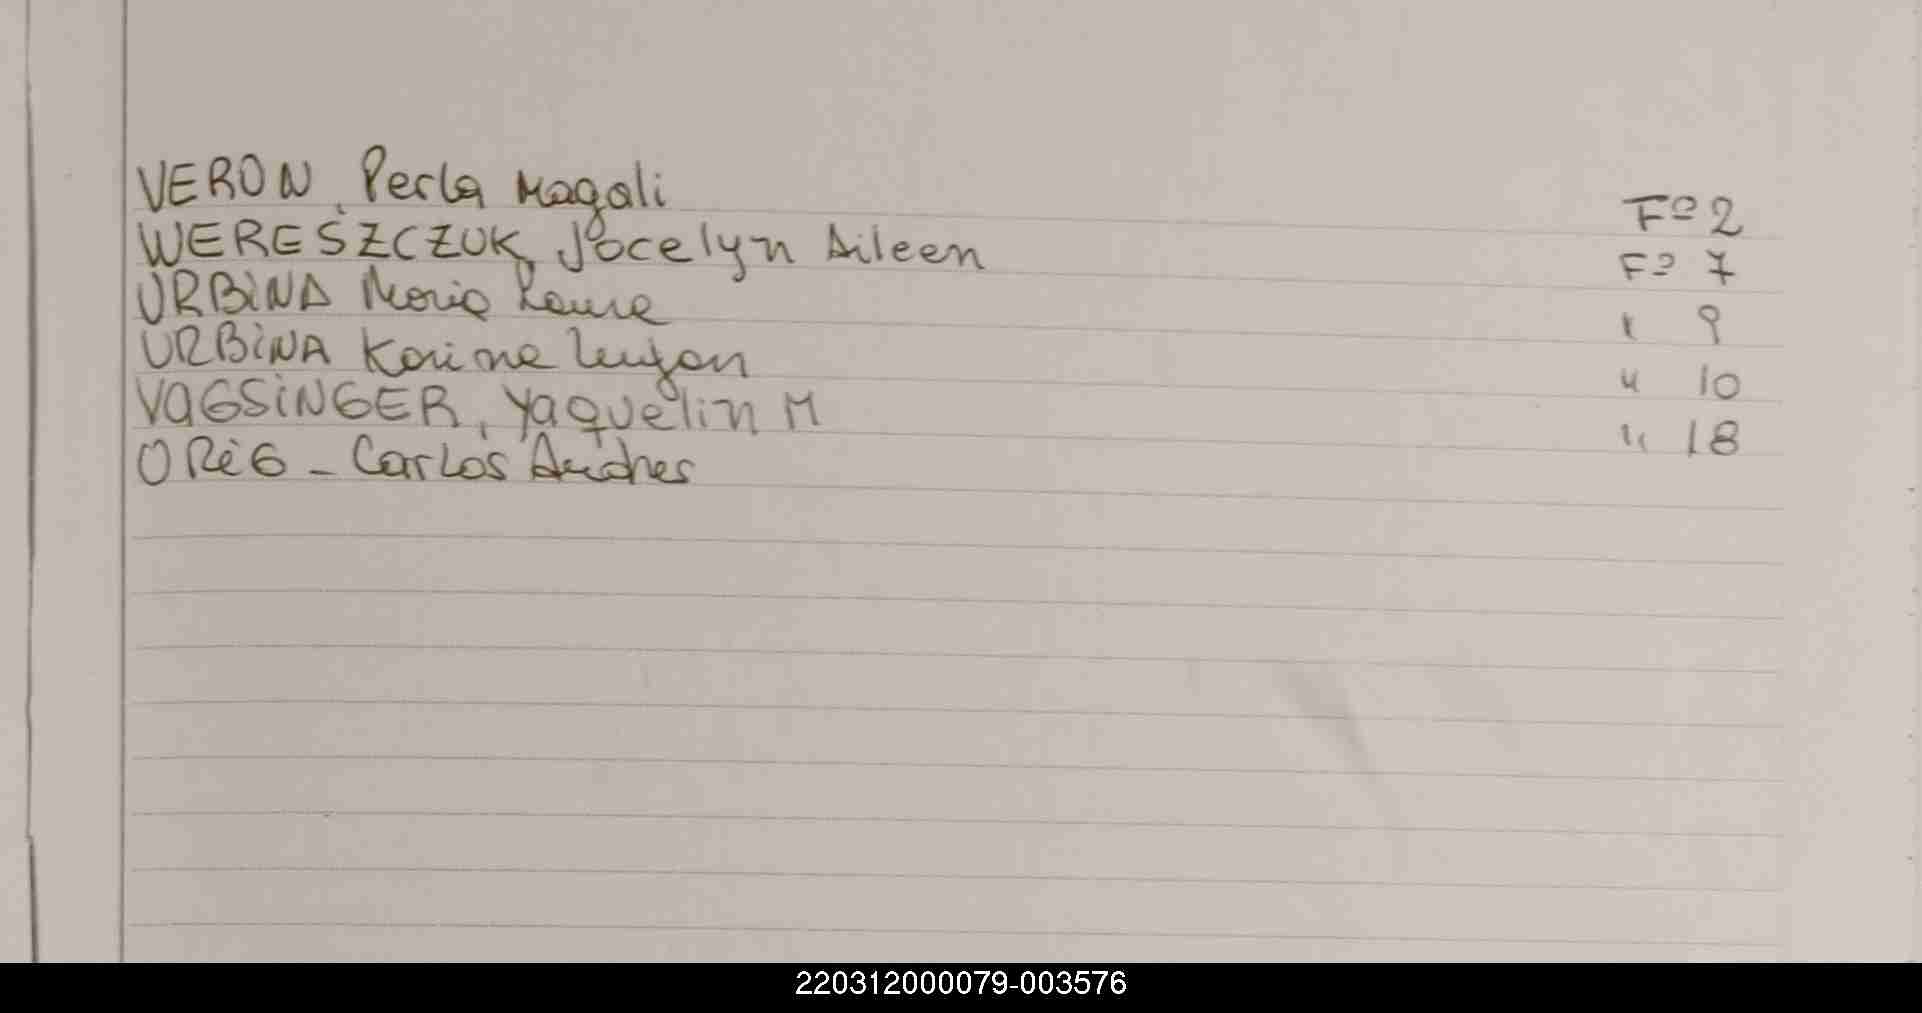 VERON, Perla Magali Fº 2
WERESZCZUK, Jocelyn Aileen Fº 7
URBINA Maria Laura " 9
URBINA Karina Lujan " 10
VAGSINGER, Yaquelin M " 18
ORIG - Carlos Andres
220312000079-003576